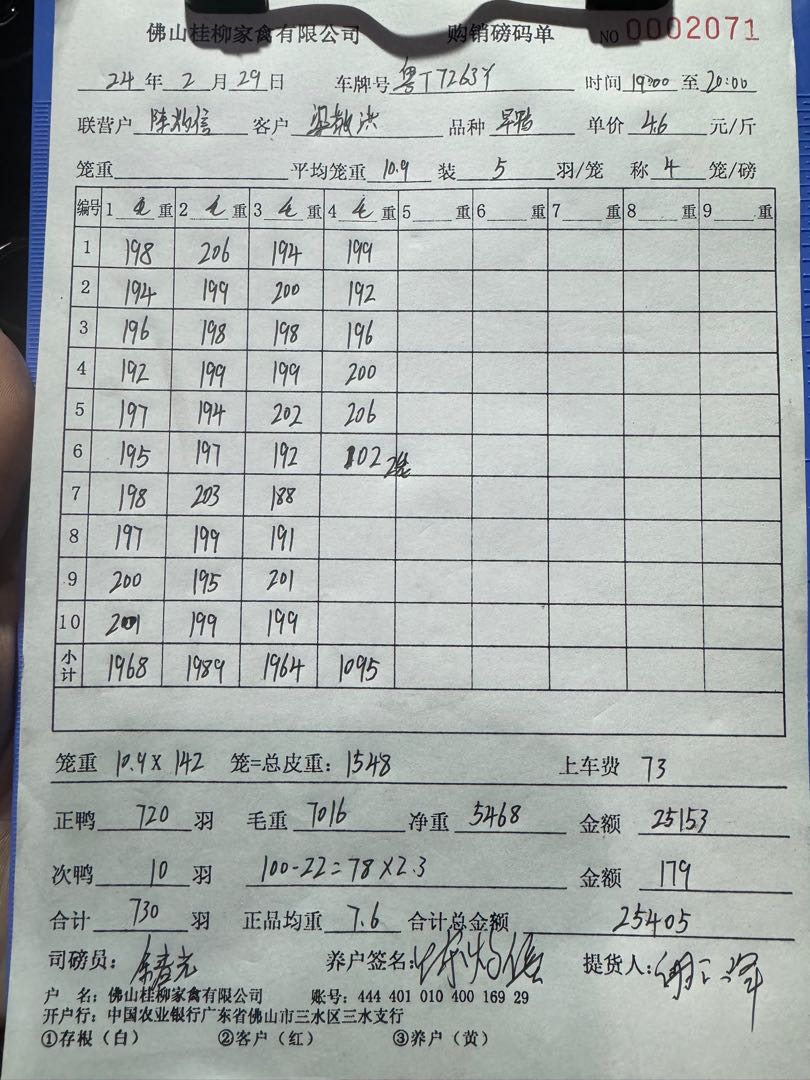 佛山桂柳家禽有限公司 购销磅码单 NO 0002071
24 年 2 月 29 日 车牌号 粤T7263Y 时间 19:00 至 20:00
联营户 陈灼信 客户 品种 旱鸭 单价 4.6 元/斤
笼重 平均笼重 10.9 装 5 羽/笼 称 4 笼/磅
编号 1 毛 重 2 毛 重 3 毛 重 4 毛 重 5 重 6 重 7 重 8 重 9 重
1 198 206 194 199
2 194 199 200 192
3 196 198 198 196
4 192 199 199 200
5 197 194 202 206
6 195 197 192 102 2笼
7 198 203 188
8 197 199 191
9 200 195 201
10 201 199 199
小计 1968 1989 1964 1095
笼重 10.9 X 142 笼=总皮重: 1548 上车费 73
正鸭 720 羽 毛重 7016 净重 5468 金额 25153
次鸭 10 羽 100-22=78X2.3 金额 179
合计 730 羽 正品均重 7.6 合计总金额 25405
司磅员: 养户签名: 陈灼信 提货人:
户 名: 佛山桂柳家禽有限公司 账号: 444 401 010 400 169 29
开户行: 中国农业银行广东省佛山市三水区三水支行
①存根（白） ②客户（红） ③养户（黄）